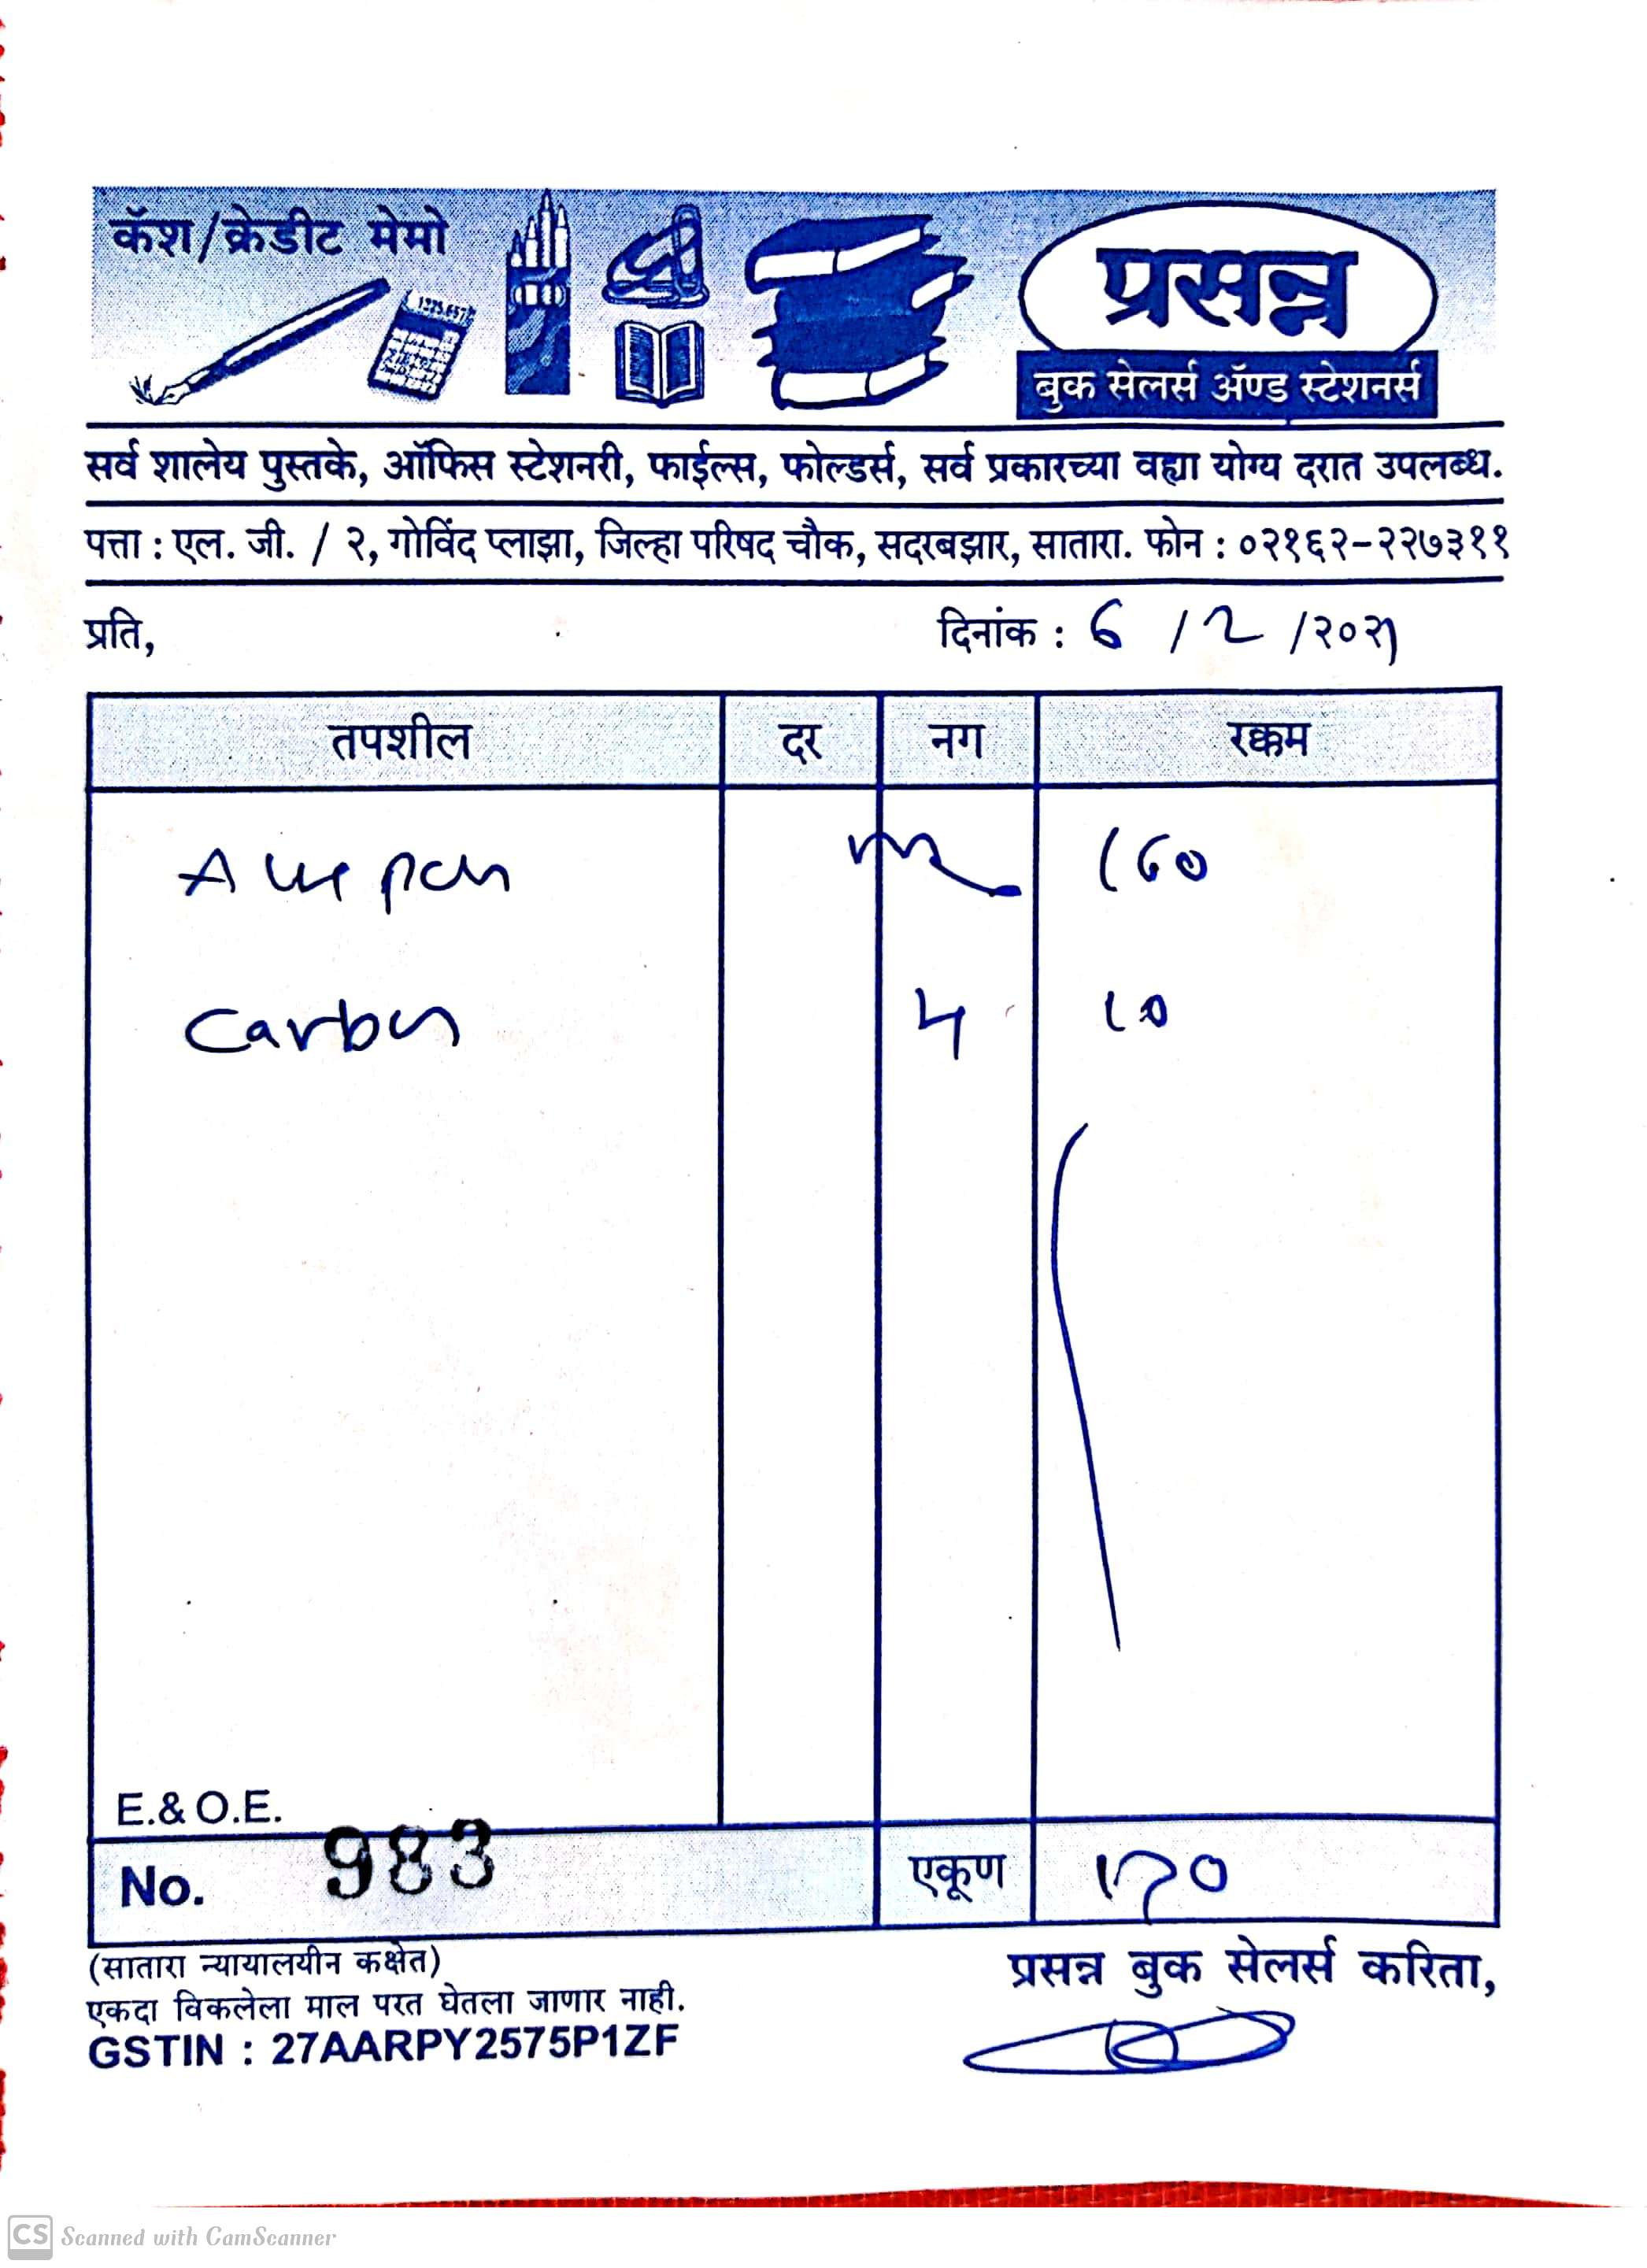 कॅश/क्रेडीट मेमो
प्रसन्न
बुक सेलर्स ॲण्ड स्टेशनर्स
सर्व शालेय पुस्तके, ऑफिस स्टेशनरी, फाईल्स, फोल्डर्स, सर्व प्रकारच्या वह्या योग्य दरात उपलब्ध.
पत्ता : एल. जी. / २, गोविंद प्लाझा, जिल्हा परिषद चौक, सदरबझार, सातारा. फोन : ०२१६२-२२७३११
प्रति, दिनांक : 6 / 2 /२०२१
तपशील दर नग रक्कम
160
Carbon 4 10
E. & O.E.
No. 983 एकूण 170
(सातारा न्यायालयीन कक्षेत)
एकदा विकलेला माल परत घेतला जाणार नाही.
GSTIN : 27AARPY2575P1ZF
प्रसन्न बुक सेलर्स करिता,
CS Scanned with CamScanner